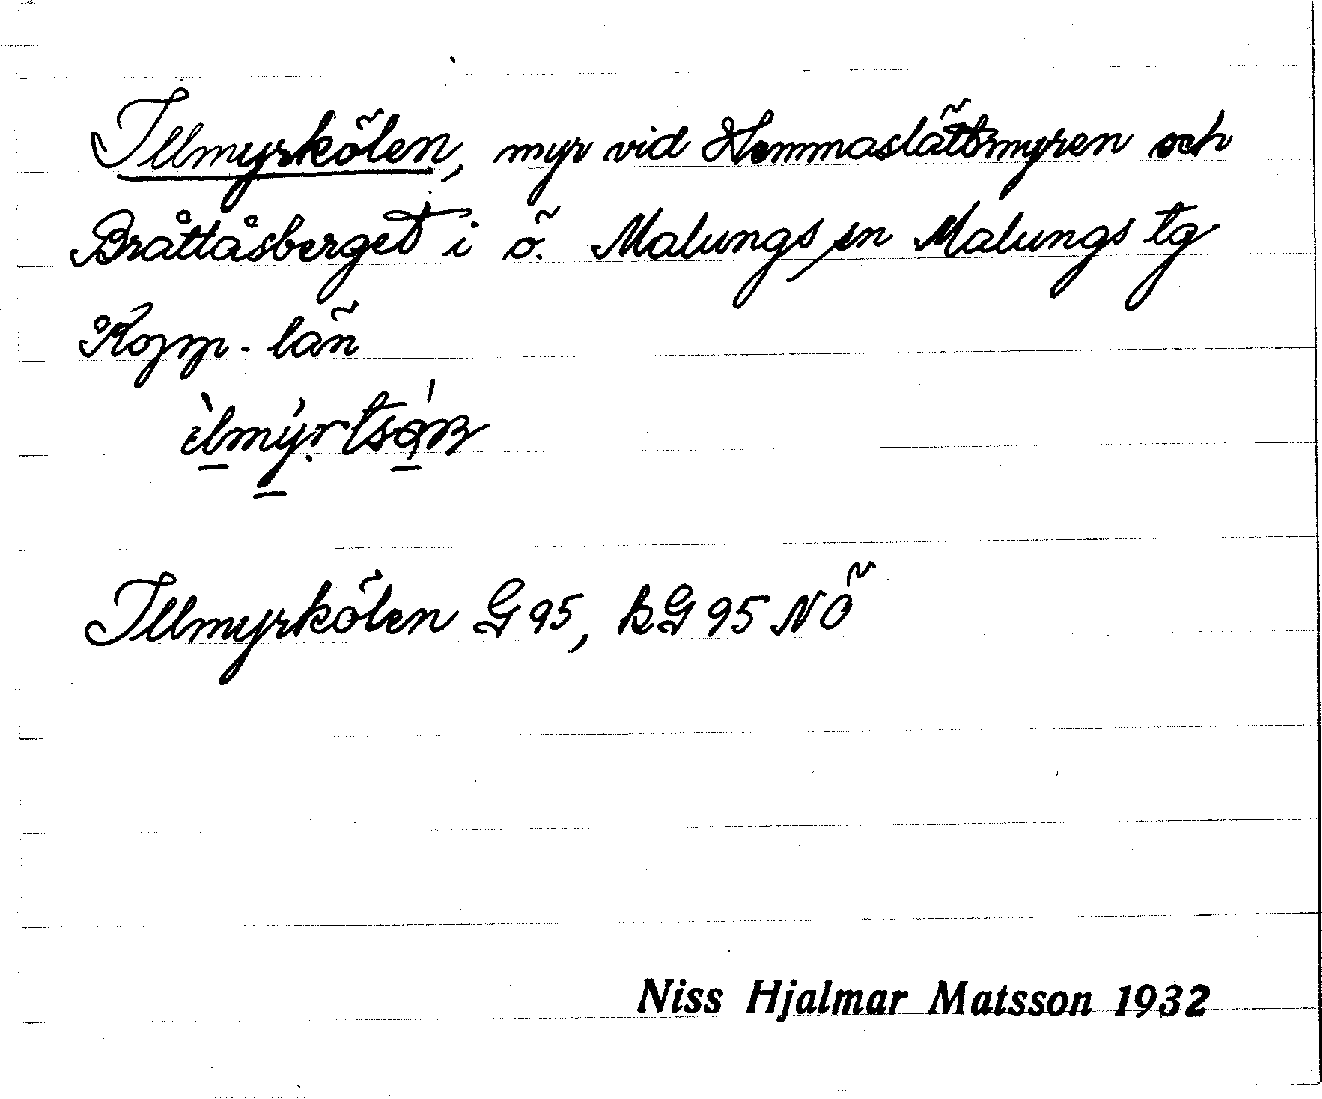 Illmyrkölen, myr vid Hemmaslättmyren och
Bråttåsberget i ö. Malungs sn Malungs tg
Kopp. län
Illmyrkölen G 95, kG 95 NÖ
Niss Hjalmar Matsson 1932